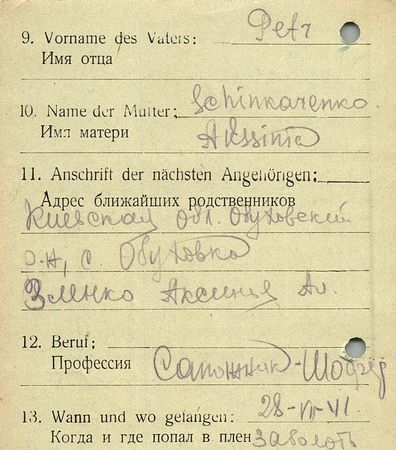 9. Vorname des Vaters: Petr
Имя отца
10. Name der Mutter: Schinkarenko
Имя матери Akssinia
11. Anschrift der nächsten Angehörigen:
Адрес ближайших родственников
Киевская обл. Обуховский
р-н, с. Обуховка
Зленко Аксинье
12. Beruf:
Профессия Сапожник-Шофер
13. Wann und wo gefangen: 28-VII-41
Когда и где попал в плен